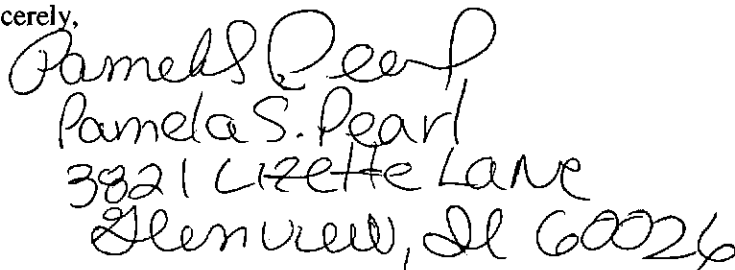 cerely,
Pamela S. Pearl
Pamela S. Pearl
3821 Lizette Lane
Glenview, Il 60026